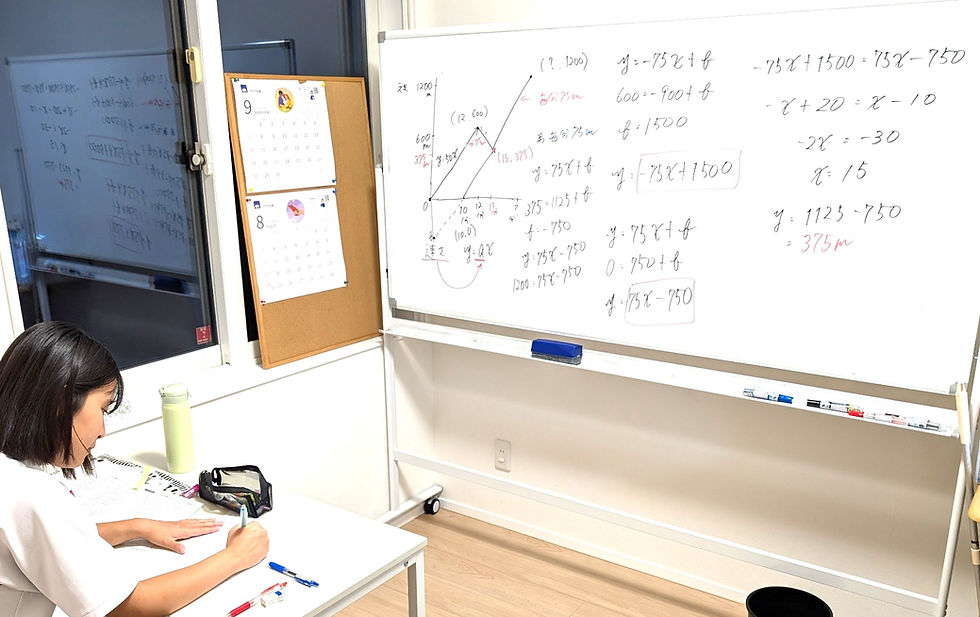 1200
m
600
m
375
m
0
y=50x
(12 600)
(15, 375)
(?, 1200)
← 毎分75m
10
12
15
(10,0)
y=ax
毎分75m
y=75x+b
375=1125+b
b=-750
y=75x-750
1200=75x-750
y=-75x+b
600=-900+b
b=1500
y=-75x+1500
y=75x+b
0=750+b
y=75x-750
-75x+1500=75x-750
-x+20=x-10
-2x=-30
x=15
y=1125-750
=375m
9
8